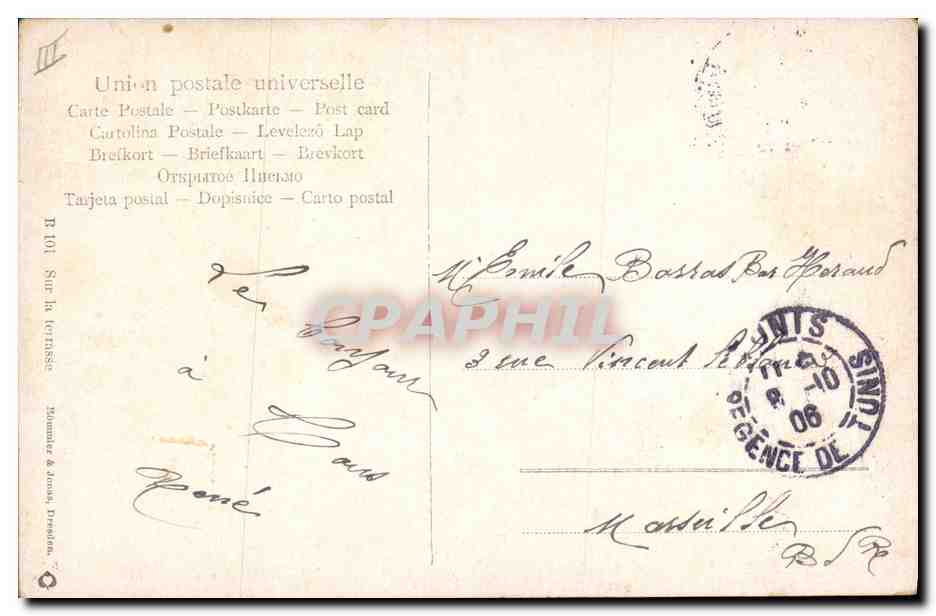 III
Union postale universelle
Carte Postale — Postkarte — Post card
Cartolina Postale — Levelező Lap
Brefkort — Briefkaart — Brevkort
Открытое Письмо
Tarjeta postal — Dopisnice — Carto postal
R 101 Sur la terrasse
Römmler & Jonas, Dresden.
Le bonjour
à
tous
René
Mr Emile Barras
3 rue Vincent
Marseille
B d R
CPAPHIL
TUNIS TUNIS
8 -10
06
REGENCE DE